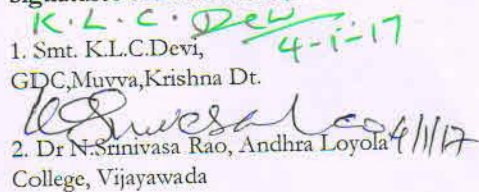 K.L.C. Devi
4-1-17
1. Smt. K.L.C.Devi,
GDC,Muvva,Krishna Dt.
4/1/17
2. Dr N.Srinivasa Rao, Andhra Loyola
College, Vijayawada